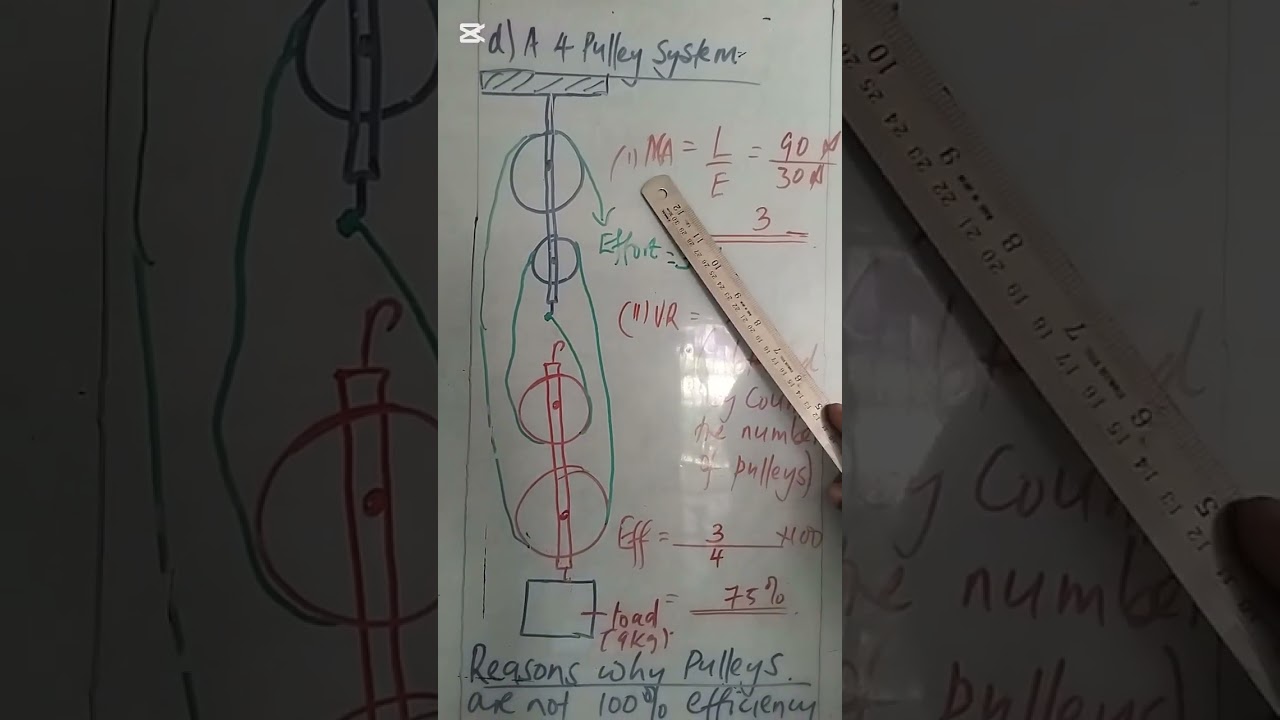 d) A 4 Pulley System
(i) MA = L/E = 90 N/30 N
3
Effort =
(ii) VR =
the number
of pulleys)
Eff = 3/4 ×100
= 75%
Load
(9kg).
Reasons why Pulleys
are not 100% efficiency